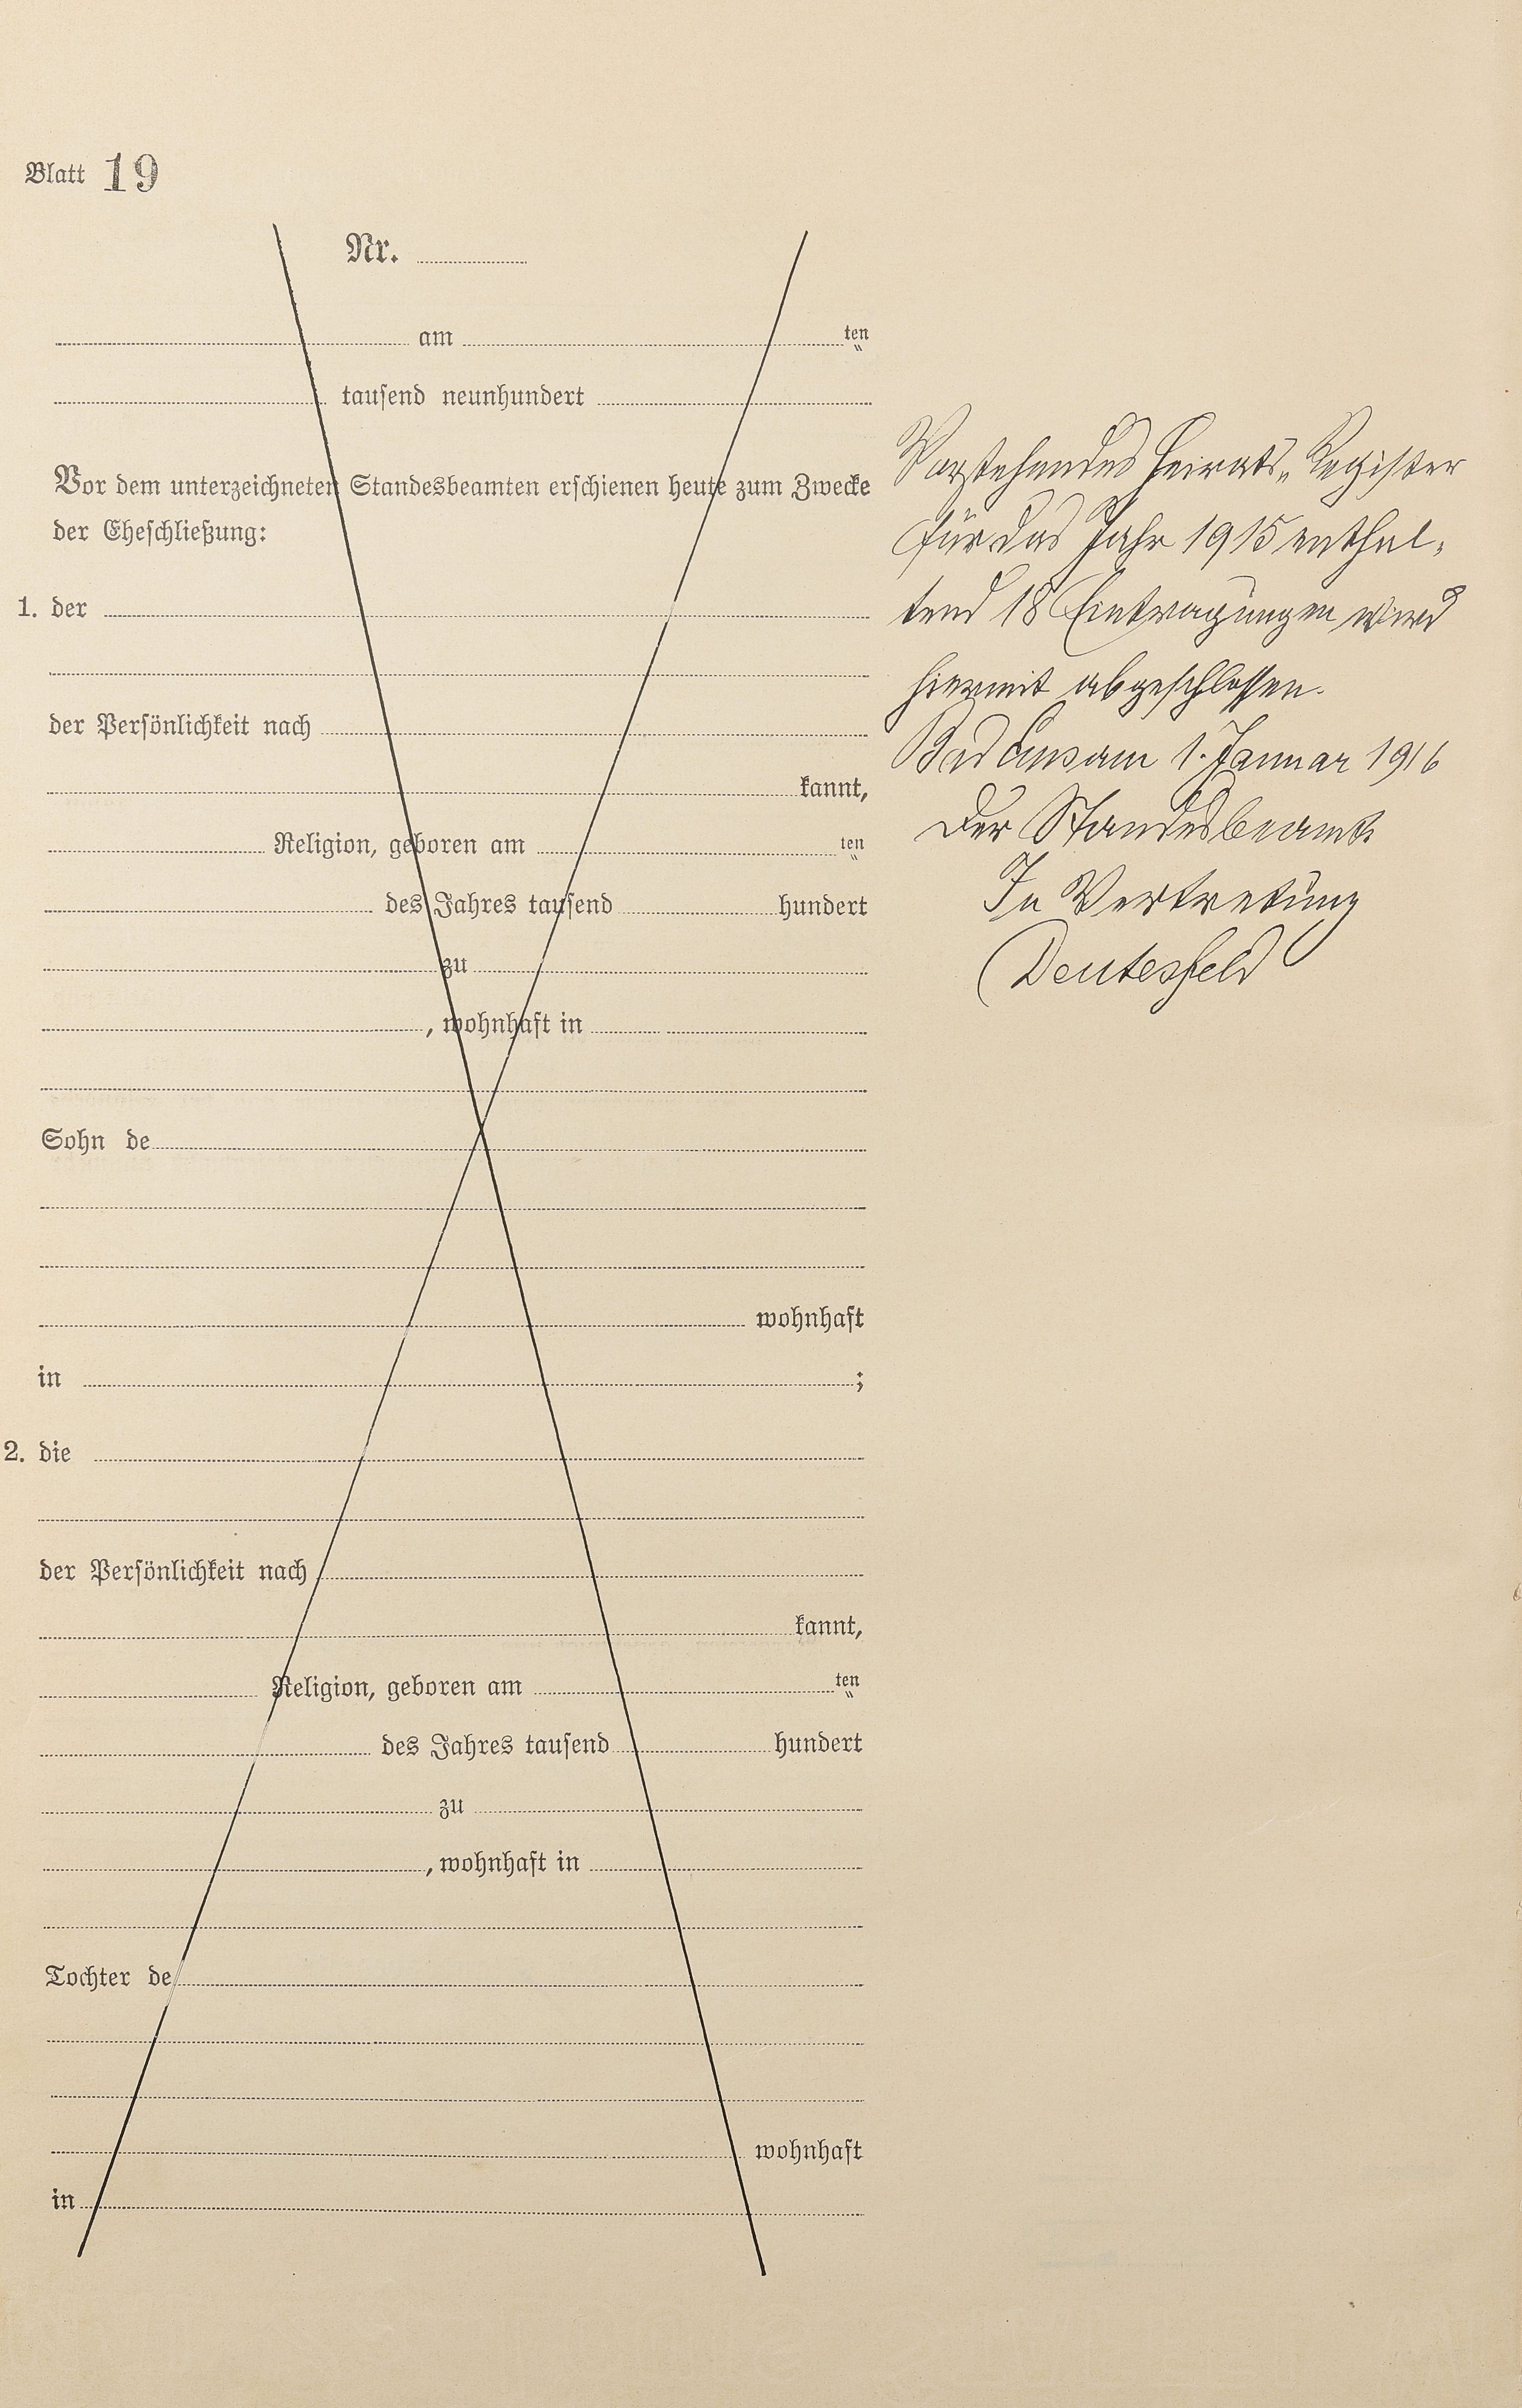 Blatt 19
Nr.
am ten
tausend neunhundert
Vor dem unterzeichneten Standesbeamten erschienen heute zum Zwecke
der Eheschließung:
1. der
der Persönlichkeit nach
kannt,
Religion, geboren am ten
des Jahres tausend hundert
zu
, wohnhaft in
Sohn de
wohnhaft
in ;
2. die
der Persönlichkeit nach
kannt,
Religion, geboren am ten
des Jahres tausend hundert
zu
, wohnhaft in
Tochter de
wohnhaft
in
Vorstehendes Heirats-Register
für das Jahr 1915 enthal-
tend 18 Eintragungen wird
hiermit abgeschlossen.
Bad Ems am 1. Januar 1916
Der Standesbeamte
In Vertretung
Deutesfeld